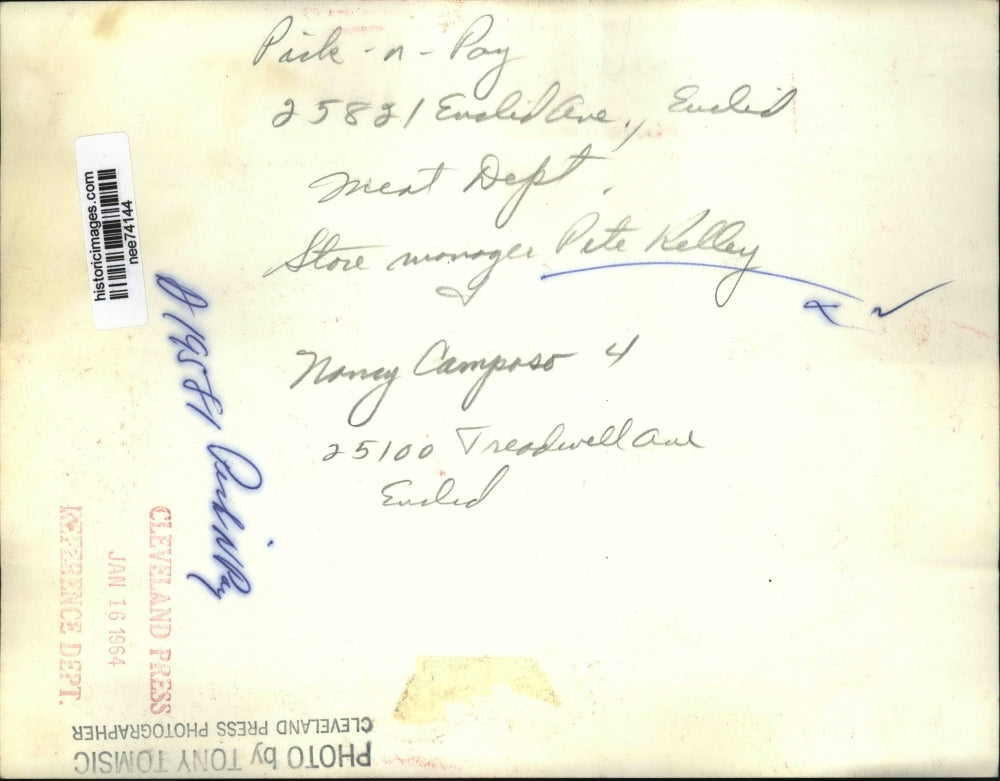 Pick-n-Pay
25821 Euclid Ave., Euclid
Meat Dept.
Store manager Pete Kelley
&
Nancy Camposo 4
25100 Treadwell Ave
Euclid
historicimages.com
nee74144
D 19581 Pick N Pay
CLEVELAND PRESS
JAN 16 1964
REFERENCE DEPT.
PHOTO by TONY TOMSIC
CLEVELAND PRESS PHOTOGRAPHER